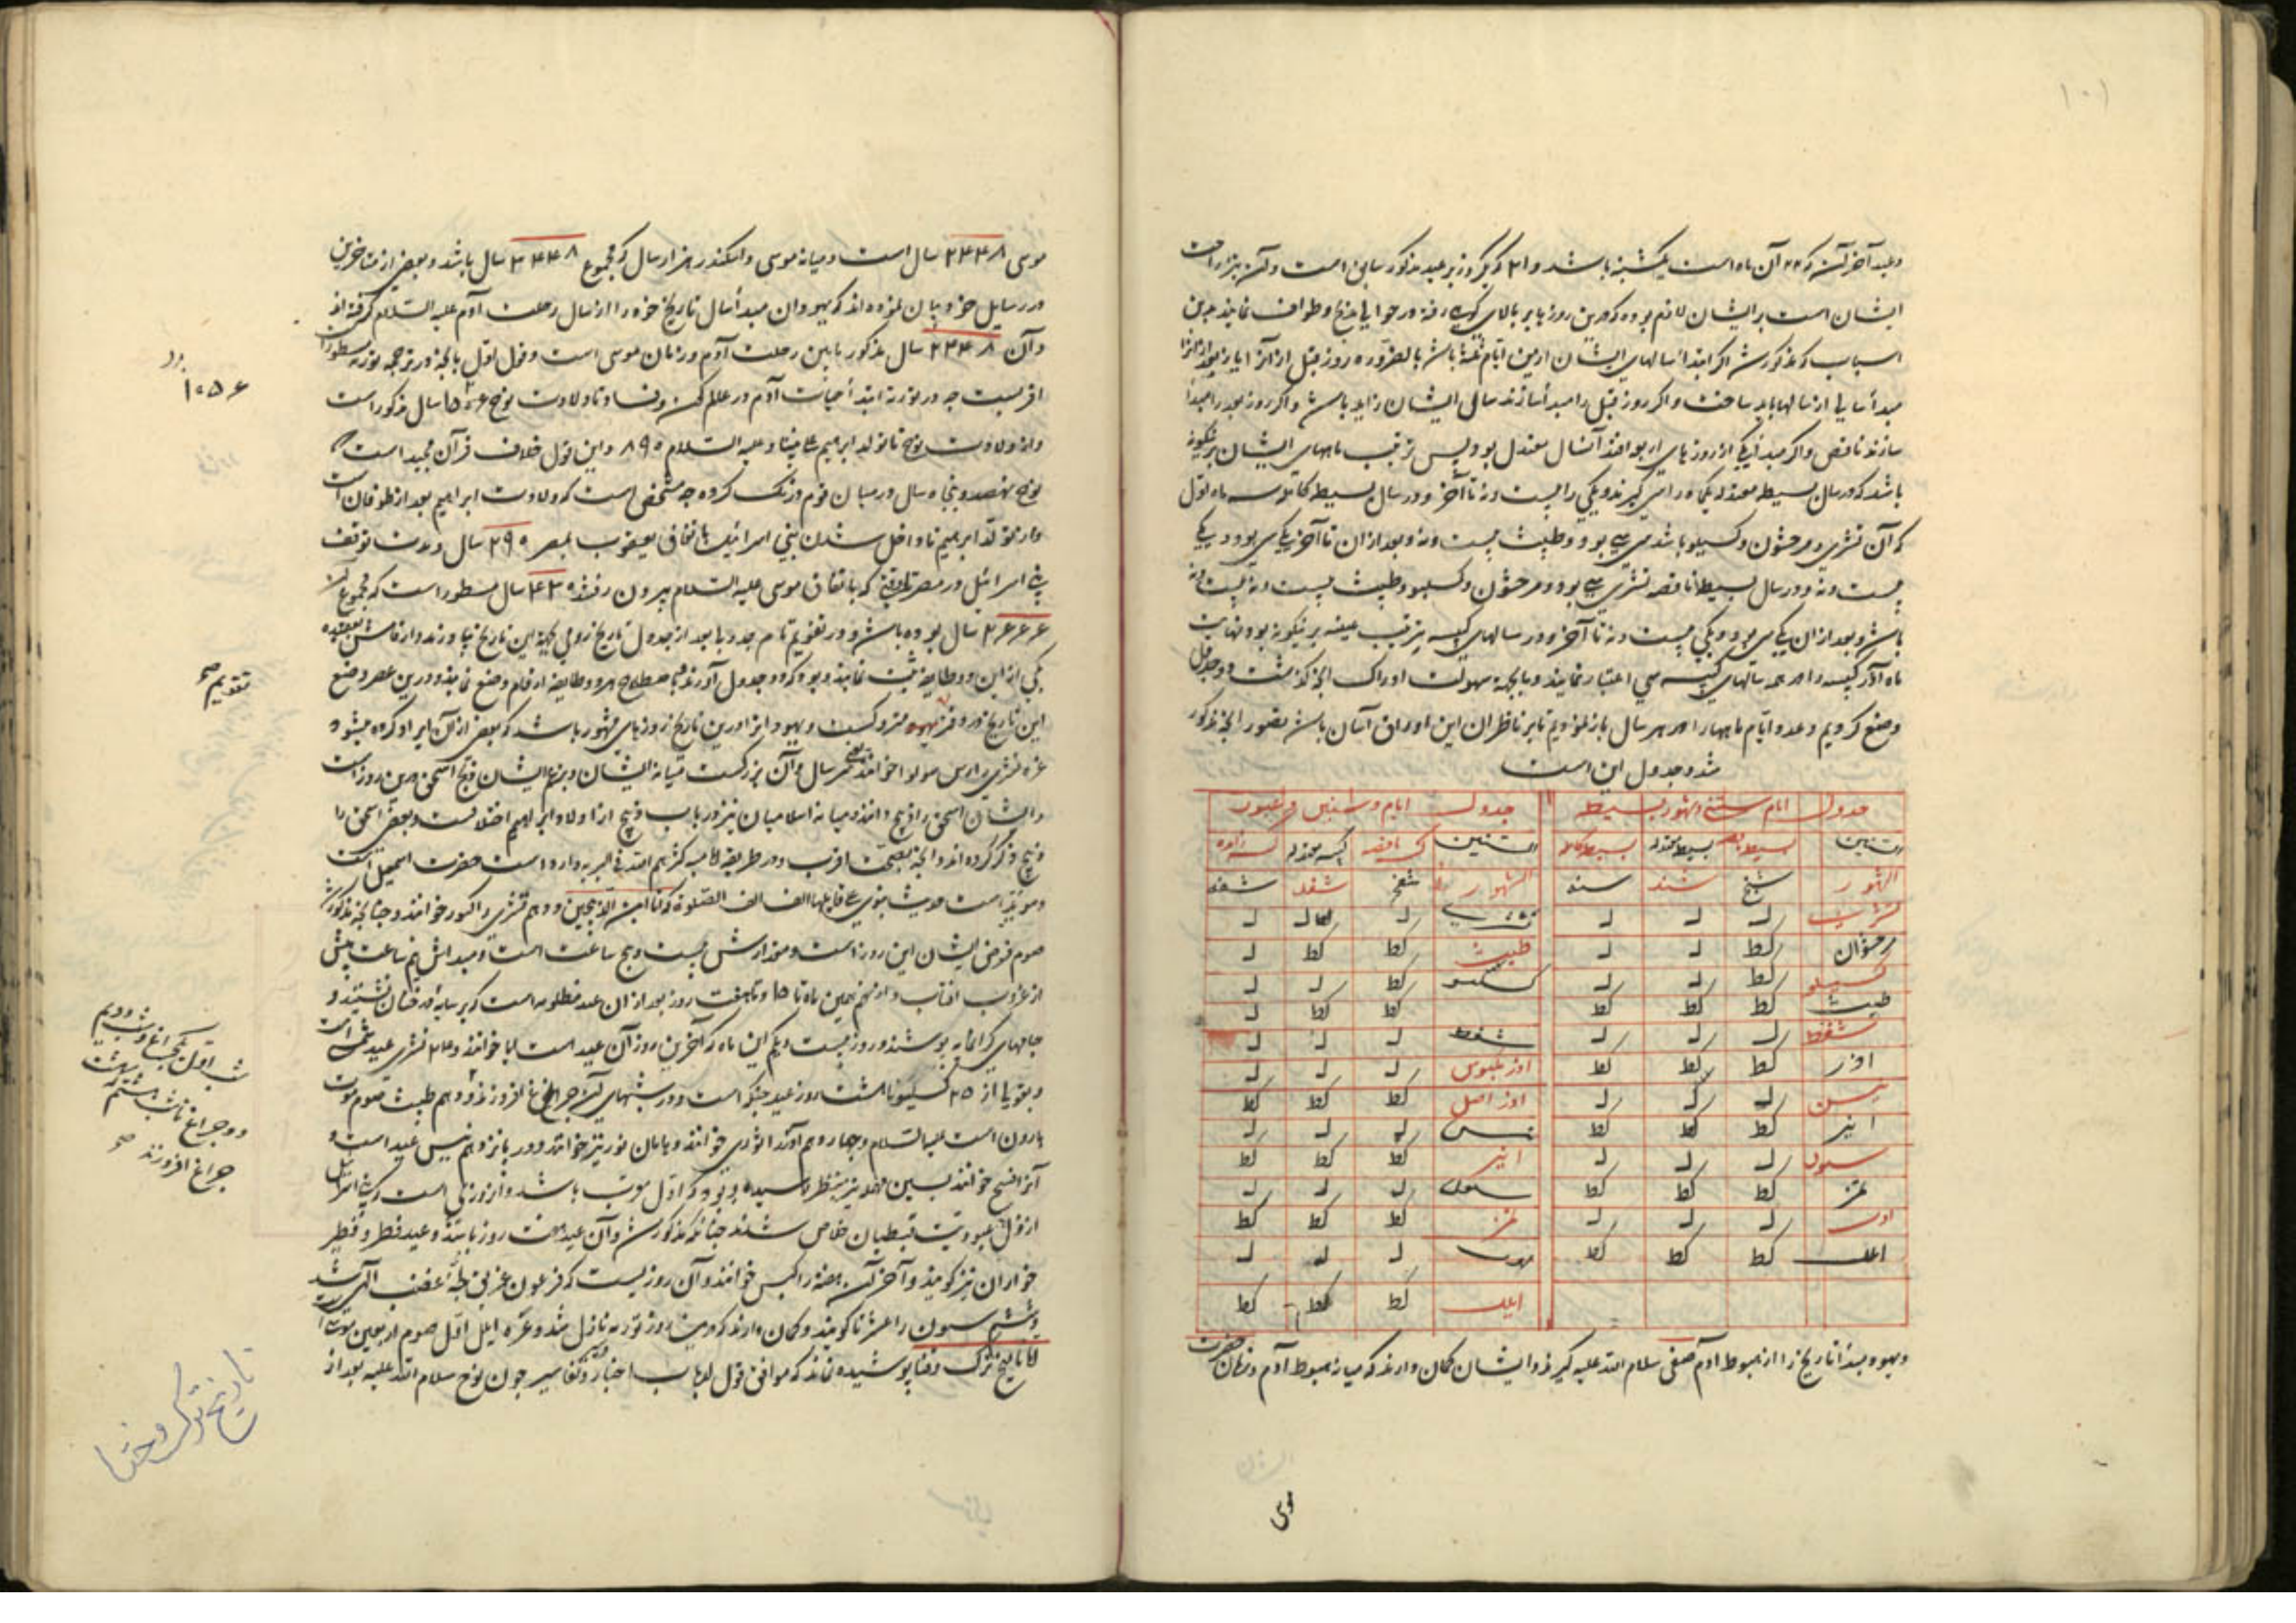 وعید آخر آن که ۲۲ آن ماه است یکشنبه باشد و اگر روز عید مذکور است و آن نیز راحت
ایشان است بر ایشان لازم بوده که درین روز بر بالای رفته در حوالی مذبح طواف نمایند بدین
اسباب که مذکور شد اگر ابتدا سالهای ایشان ازین ایام باشد بالضروره روز قبل از آنرا یا روز بعد از آنرا
مبدأ سالی از سالها باید ساخت و اگر روز قبل را مبدأ سازند سالی ایشان زاید باشد و اگر روز بعد را مبدأ
سازند ناقص و اگر مبدأ یکی از روزهای اربعه افتد آنسال معتدل بود پس ترتیب ماههای ایشان برینگونه
باشد که در سال بسیطه معتدله یکماه را سی گیرند و یکی را بیست و نه تا آخر و در سال بسیطه کامله سه ماه اول
که آن تشری و مرحشون و کسیلو باشد سی سی بود و طبیث بیست و نه و بعد از ان تا آخر یکی سی بود و یکی
بیست و نه و در سال بسیطه ناقصه تشری سی بود و مرحشون و کسیلو و طبیث بیست و نه بیست و نه
باشد و بعد از ان یکی سی بود و یکی بیست و نه تا آخر و در سالهای کبیسه ترتیب بعینه برینگونه بود و نهایت
ماه آذر کبیسه را در همه سالهای کبیسه سی اعتبار نمایند و بالجمله سهولت ادراک آنچه گذشت دو جدول
وضع کردیم و عدد ایام ماهها را در هر سال باز نمودیم تا بر ناظران این اوراق آسان باشد تصور آنچه مذکور
شد و جدول این است
جدول ایام سنین و شهور بسیطه جدول ایام و سنین و عبور
السنین بسیطه ناقصه بسیطه معتدله بسیطه کامله السنین کبیسه ناقصه کبیسه معتدله کبیسه زایده
الشهور شنج شند شنه الشهور شفج شفد شفه
تشری ل ل ل تشری ل ل ل
مرحشوان کط ل ل طبیث کط کط ل
کسیلو کط ل ل کسلیو کط ل ل
طبیث کط کط کط کط کط ل
شفط ل ل ل شفط ل ل ل
اذر کط کط کط اذر کبوس ل ل ل
نیسن ل ل ل اذر اصل کط کط کط
ایر کط کط کط نیسن ل ل ل
سیون ل ل ل ایر کط کط کط
تمز کط کط کط سیون ل ل ل
اوب ل ل ل تمز کط کط کط
ایلل کط کط کط اوب ل ل ل
ایلل کط کط کط
و یهود مبدأ تاریخ را از هبوط آدم صفی سلام الله علیه گیرند و ایشان گمان دارند که میان هبوط آدم و زمان حضرت
موسی
موسی ۲۴۴۸ سال است و میانه موسی و اسکندر هزار سال که مجموع ۳۴۴۸ سال باشد و بعضی از متاخرین
در رسایل خود بیان نموده اند که یهودان مبدأ سال تاریخ خود را از سال رحلت آدم علیه السلام گرفته اند
و آن ۲۴۴۸ سال مذکور مابین رحلت آدم و زمان موسی است و قول اول بآنچه در ترجمه توریة مسطور
اقربست چه در توریة ابتدأ حیات آدم در عالم کون و فساد تا ولادت نوح ۱۰۵۶ سال مذکور است
و از ولادت نوح تا تولد ابراهیم علی نبینا و علیه السلام ۸۹۰ و این قول خلاف قرآن مجید است که
نوح نهصد و پنجاه سال در میان قوم درنگ کرده چه مشخص است که ولادت ابراهیم بعد از طوفان است
و از تولد ابراهیم تا داخل شدن بنی اسرائیل باتفاق یعقوب بمصر ۲۹۰ سال و مدت توقف
بنی اسرائیل در مصر تا وقتی که باتفاق موسی علیه السلام بیرون رفتند ۴۳۰ سال مسطور است که مجموع
۲۶۶۶ سال بوده باشد و در تقویم تام جدولها بعد از جدول تاریخ رومی این تاریخ نیاورند و از قامش بعقیده
یکی از این دو طایفه ثبت نمایند و بود که دو جدول آورند و باصطلاح هر دو طایفه ارقام وضع نمایند و درین عصر وضع
این تاریخ در دفتر متروکست و یهود را درین تاریخ روزهای مشهور باشد که بعضی از آن ایراد کرده میشود
غره تشری را رأس مولو خوانند یعنی سر سال و آن بزرگست میانه ایشان و بزعم ایشان ذبح اسحق درین روز است
و ایشان اسحق را ذبیح دانند و میانه اسلامیان نیز در باب ذبیح از اولاد ابراهیم اختلافست و بعضی اسحق را
ذبیح ذکر کرده اند و آنچه بصحت اقرب و در طریقه امامیه کثرهم الله فی البریه وارد است حضرت اسمعیل است
و موید آنست حدیث نبوی علی قایلها الف الف الصلوة که انا ابن الذبیحین و دهم تشری را کبور خوانند و چنانچه مذکور شد
صوم فرض ایشان این روز است و مقدارش بیست و پنج ساعت است و مبدأش نیم ساعت پیش
از غروب آفتاب و از پانزدهم همین ماه تا ۱۵ و تا هفت روز بعد از ان عید مظله است که بر سایه درختان نشینند و
جامهای گرانمایه پوشند و روز بیست و یکم این ماه که آخرین روز آن عید است لبا خوانند و ۲۲ تشری عید تمت است
و بقویا از ۲۵ کسیلو تا هشت روز عید حنکه است و در شبهای آن چراغها افروزند و دهم طبیث صوم موت
هارون است علیه السلام و چهاردهم آذر الفوری خوانند و هامان سوز نیز خوانند و در پانزدهم نیسن عید است و
آنرا فسح خوانند
از ذل عبودیت قبطیان خلاص شدند چنانکه مذکور شد و آن عید هفت روز باشد و عید فطر و فطیر
خواران نیز گویند و آخر آن هفته را کبس خوانند و آن روزیست که فرعون غریق لجه غضب الهی شد
و ششم سیون را عنصرتا گویند و گمان دارند که درین روز توریة نازل شد و غره ایلل اول صوم اربعین موسی است
اما تاریخ ترک و ختا پوشیده نماند که موافق قول ارباب اخبار و تفاسیر چون نوح سلام الله علیه بعد از
۱۰۵۶
تقویم صح
شب اول یک چراغ و شب دویم
دو چراغ تا شب هشتم هشت
چراغ افروزند صح
تاریخ ترک و ختا
۱۰۱